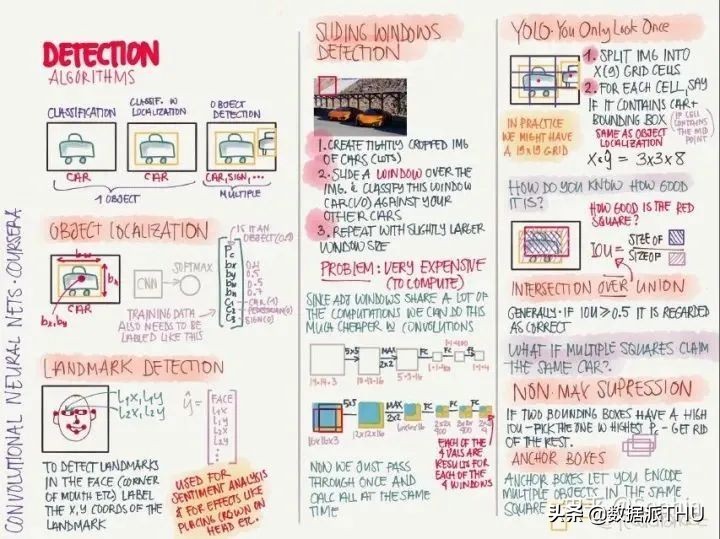 DETECTION
ALGORITHMS
CLASSIFICATION
CLASSIF. W
LOCALIZATION
OBJECT
DETECTION
CAR
CAR
CAR, SIGN, ...
1 OBJECT
MULTIPLE
OBJECT LOCALIZATION
IS IT AN
OBJECT (0,1)
bw
bh
bx,by
CAR
CNN
SOFTMAX
Pc
bx 0.4
by 0.5
bh 0.5
bw 0.7
C1 CAR (1)
C2 PEDESTRIAN (0)
C3 SIGN (0)
TRAINING DATA
ALSO NEEDS TO BE
LABLED LIKE THIS
LANDMARK DETECTION
L1X, L1Y
L2X, L2Y
ŷ =
FACE
L1X
L1Y
L2X
L2Y
TO DETECT LANDMARKS
IN THE FACE (CORNER
OF MOUTH ETC) LABEL
THE X,Y COORDS OF THE
LANDMARK
USED FOR
SENTIMENT ANALYSIS
& FOR EFFECTS LIKE
PLACING CROWN ON
HEAD ETC.
CONVOLUTIONAL NEURAL NETS · COURSERA
SLIDING WINDOWS
DETECTION
1. CREATE TIGHTLY CROPPED IMG
OF CARS (LOTS)
2. SLIDE A WINDOW OVER THE
IMG. & CLASSIFY THIS WINDOW
CAR(1/0) AGAINST YOUR
OTHER CARS
3. REPEAT WITH SLIGHTLY LARGER
WINDOW SIZE
PROBLEM: VERY EXPENSIVE
(TO COMPUTE)
SINCE ADJ WINDOWS SHARE A LOT OF
THE COMPUTATIONS WE CAN DO THIS
MUCH CHEAPER W CONVOLUTIONS
5x5
MAX
2x2
FC
FC
14×14×3
10×10×16
5×5×16
1×1×400
1×1×400
1×1×4
5x5
MAX
FC
FC
FC
16x16x3
12x12x16
6x6x16
2x2x
400
2x2x
400
2x2x
4
EACH OF THE
4 VALS ARE
RESULTS FOR
EACH OF THE
4 WINDOWS
NOW WE JUST PASS
THROUGH ONCE AND
CALC ALL AT THE
SAME TIME
YOLO · You Only Look Once
1. SPLIT IMG INTO
X(9) GRID CELLS
2. FOR EACH CELL, SAY
IF IT CONTAINS CAR +
BOUNDING BOX
(IF CELL
CONTAINS
THE MID
POINT)
IN PRACTICE
WE MIGHT HAVE
A 19x19 GRID
SAME AS OBJECT
LOCALIZATION
X·9 = 3x3x8
HOW DO YOU KNOW HOW GOOD
IT IS?
HOW GOOD IS THE RED
SQUARE?
IOU =
SIZE OF
SIZE OF
INTERSECTION OVER UNION
GENERALLY · IF IOU ≥ 0.5 IT IS REGARDED
AS CORRECT
WHAT IF MULTIPLE SQUARES CLAIM
THE SAME CAR?
NON-MAX SUPRESSION
IF TWO BOUNDING BOXES HAVE A HIGH
IOU - PICK THE ONE W HIGHEST Pc - GET RID
OF THE REST.
ANCHOR BOXES
ANCHOR BOXES LET YOU ENCODE
MULTIPLE OBJECTS IN THE SAME
SQUARE
头条 @数据派THU